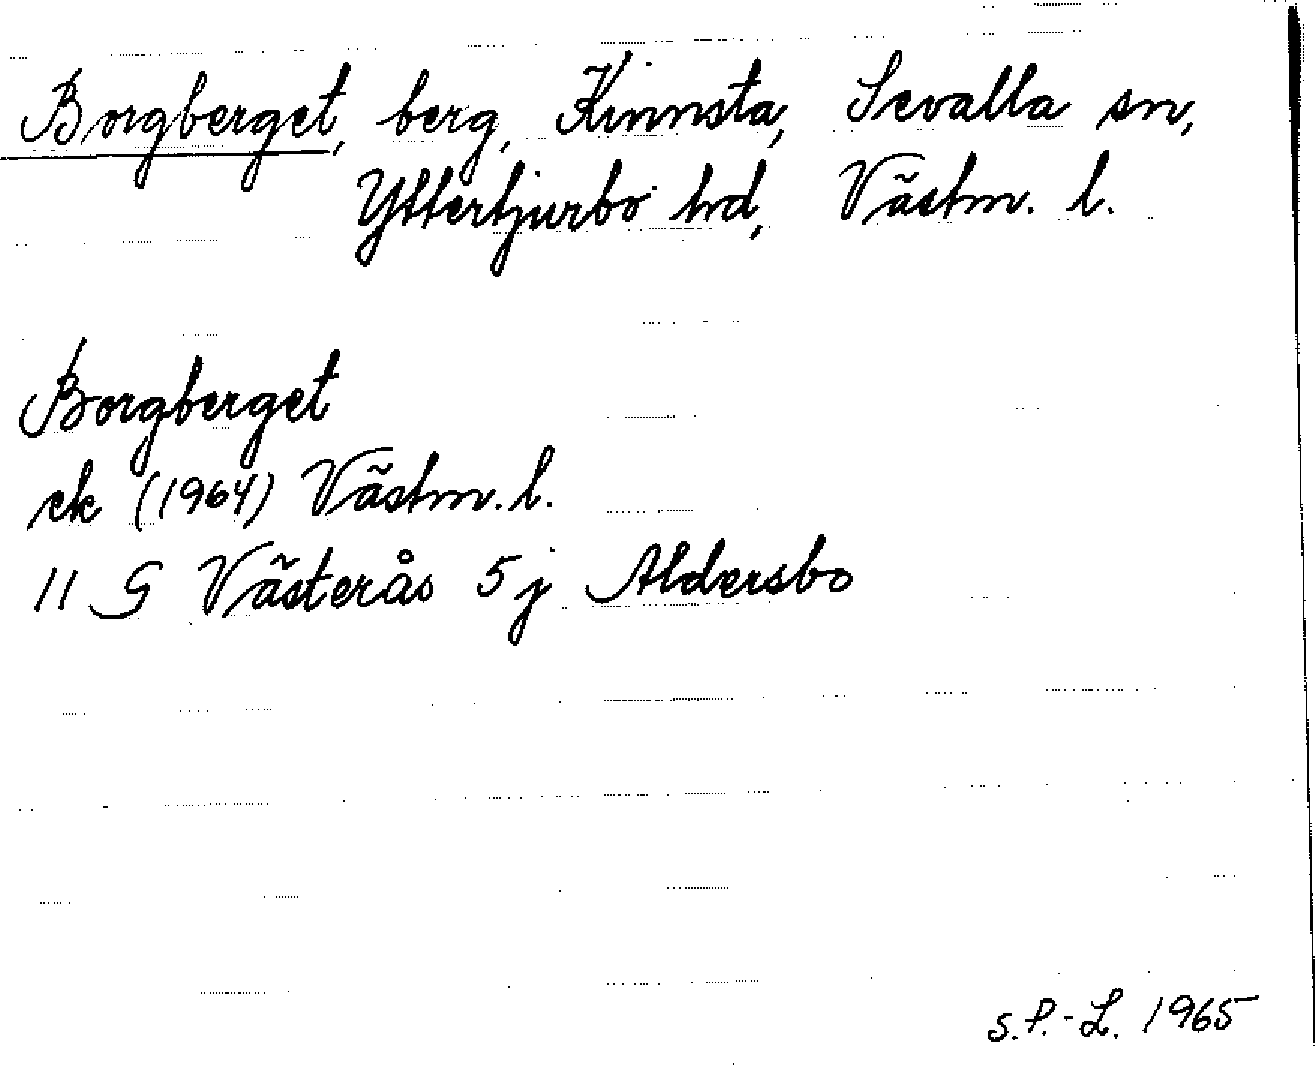 Borgberget, berg, Kinnsta, Sevalla sn,
Yttertjurbo hd, Västm. l.
Borgberget
ek (1964) Västm. l.
11 G Västerås 5 j Aldersbo
S.P.-L. 1965